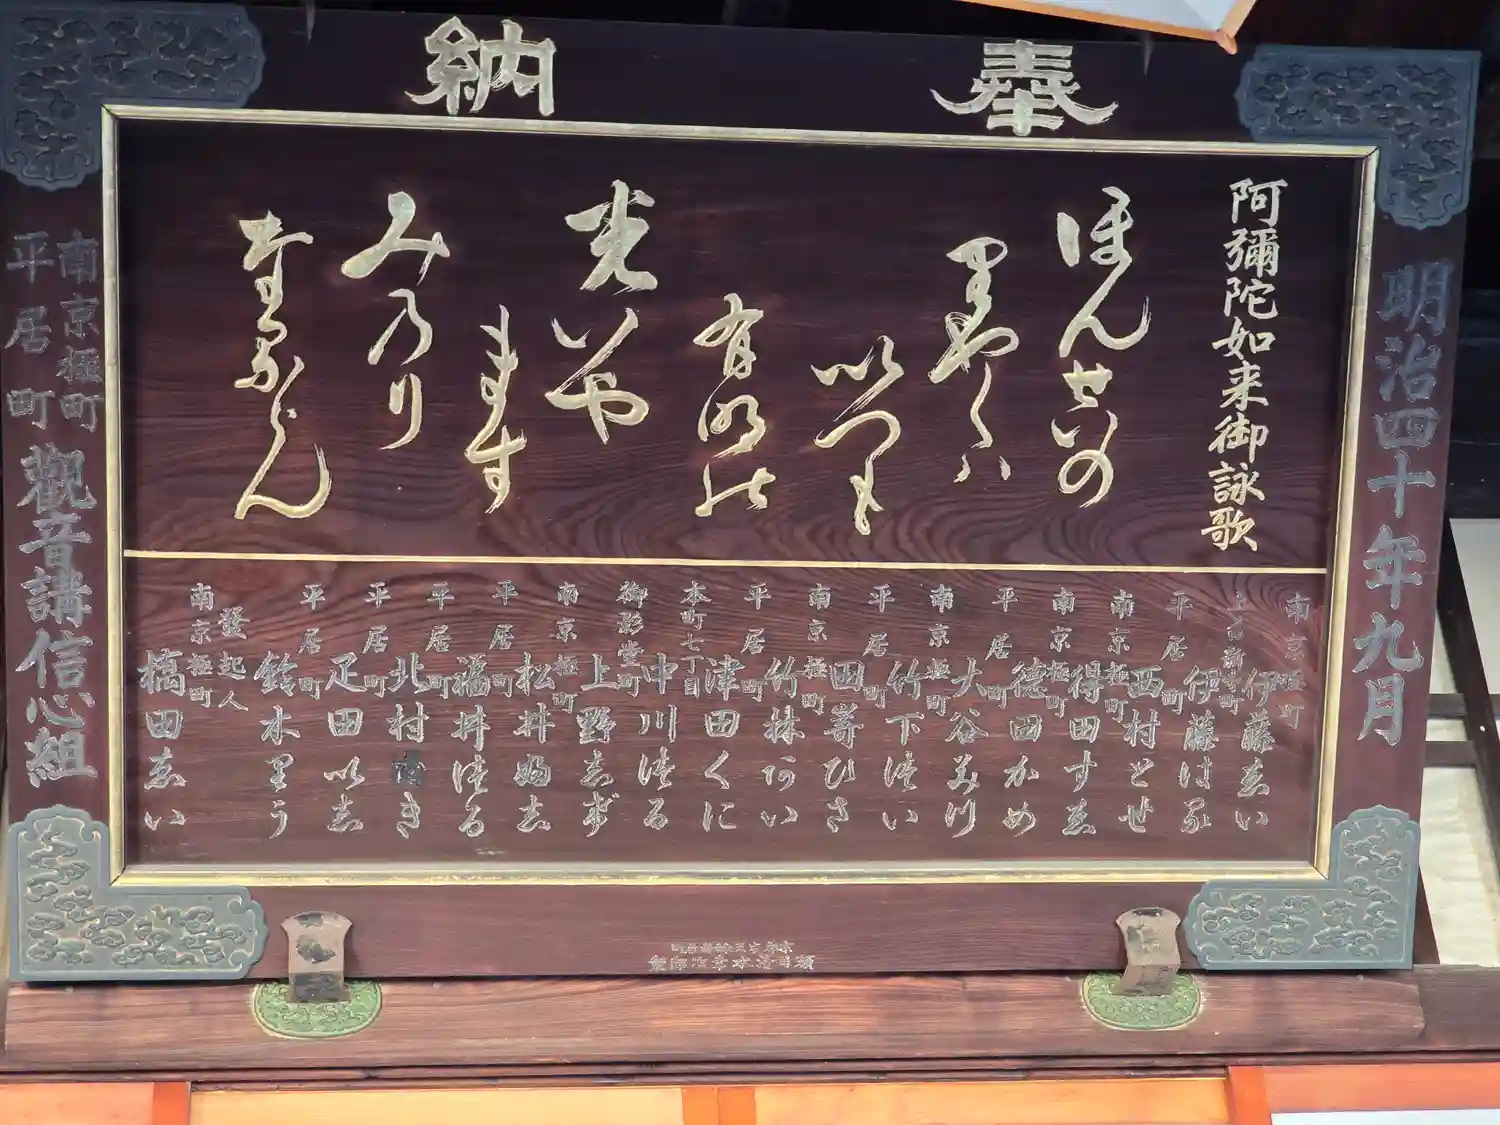 奉納
明治四十年九月
阿彌陀如来御詠歌
ほんぜいの
里やくハ
いつも
有明の
光いや
ます
みのり
なるらん
南京極町
伊藤ゑい
伊藤けゐ
平居町
西村とせ
南京極町
得田すゑ
南京極町
德田かめ
平居町
大谷みつ
南京極町
竹下はい
平居町
田嵜ひさ
南京極町
竹林あい
平居町
津田くに
本町七丁目
中川はる
御影堂町
上野志げ
南京極町
松井婦志
平居町
福井はる
平居町
北村きき
平居町
疋田いゑ
平居町
鈴木里う
發起人
南京極町
橋田ゑい
南京極町
平居町
觀音講信心組